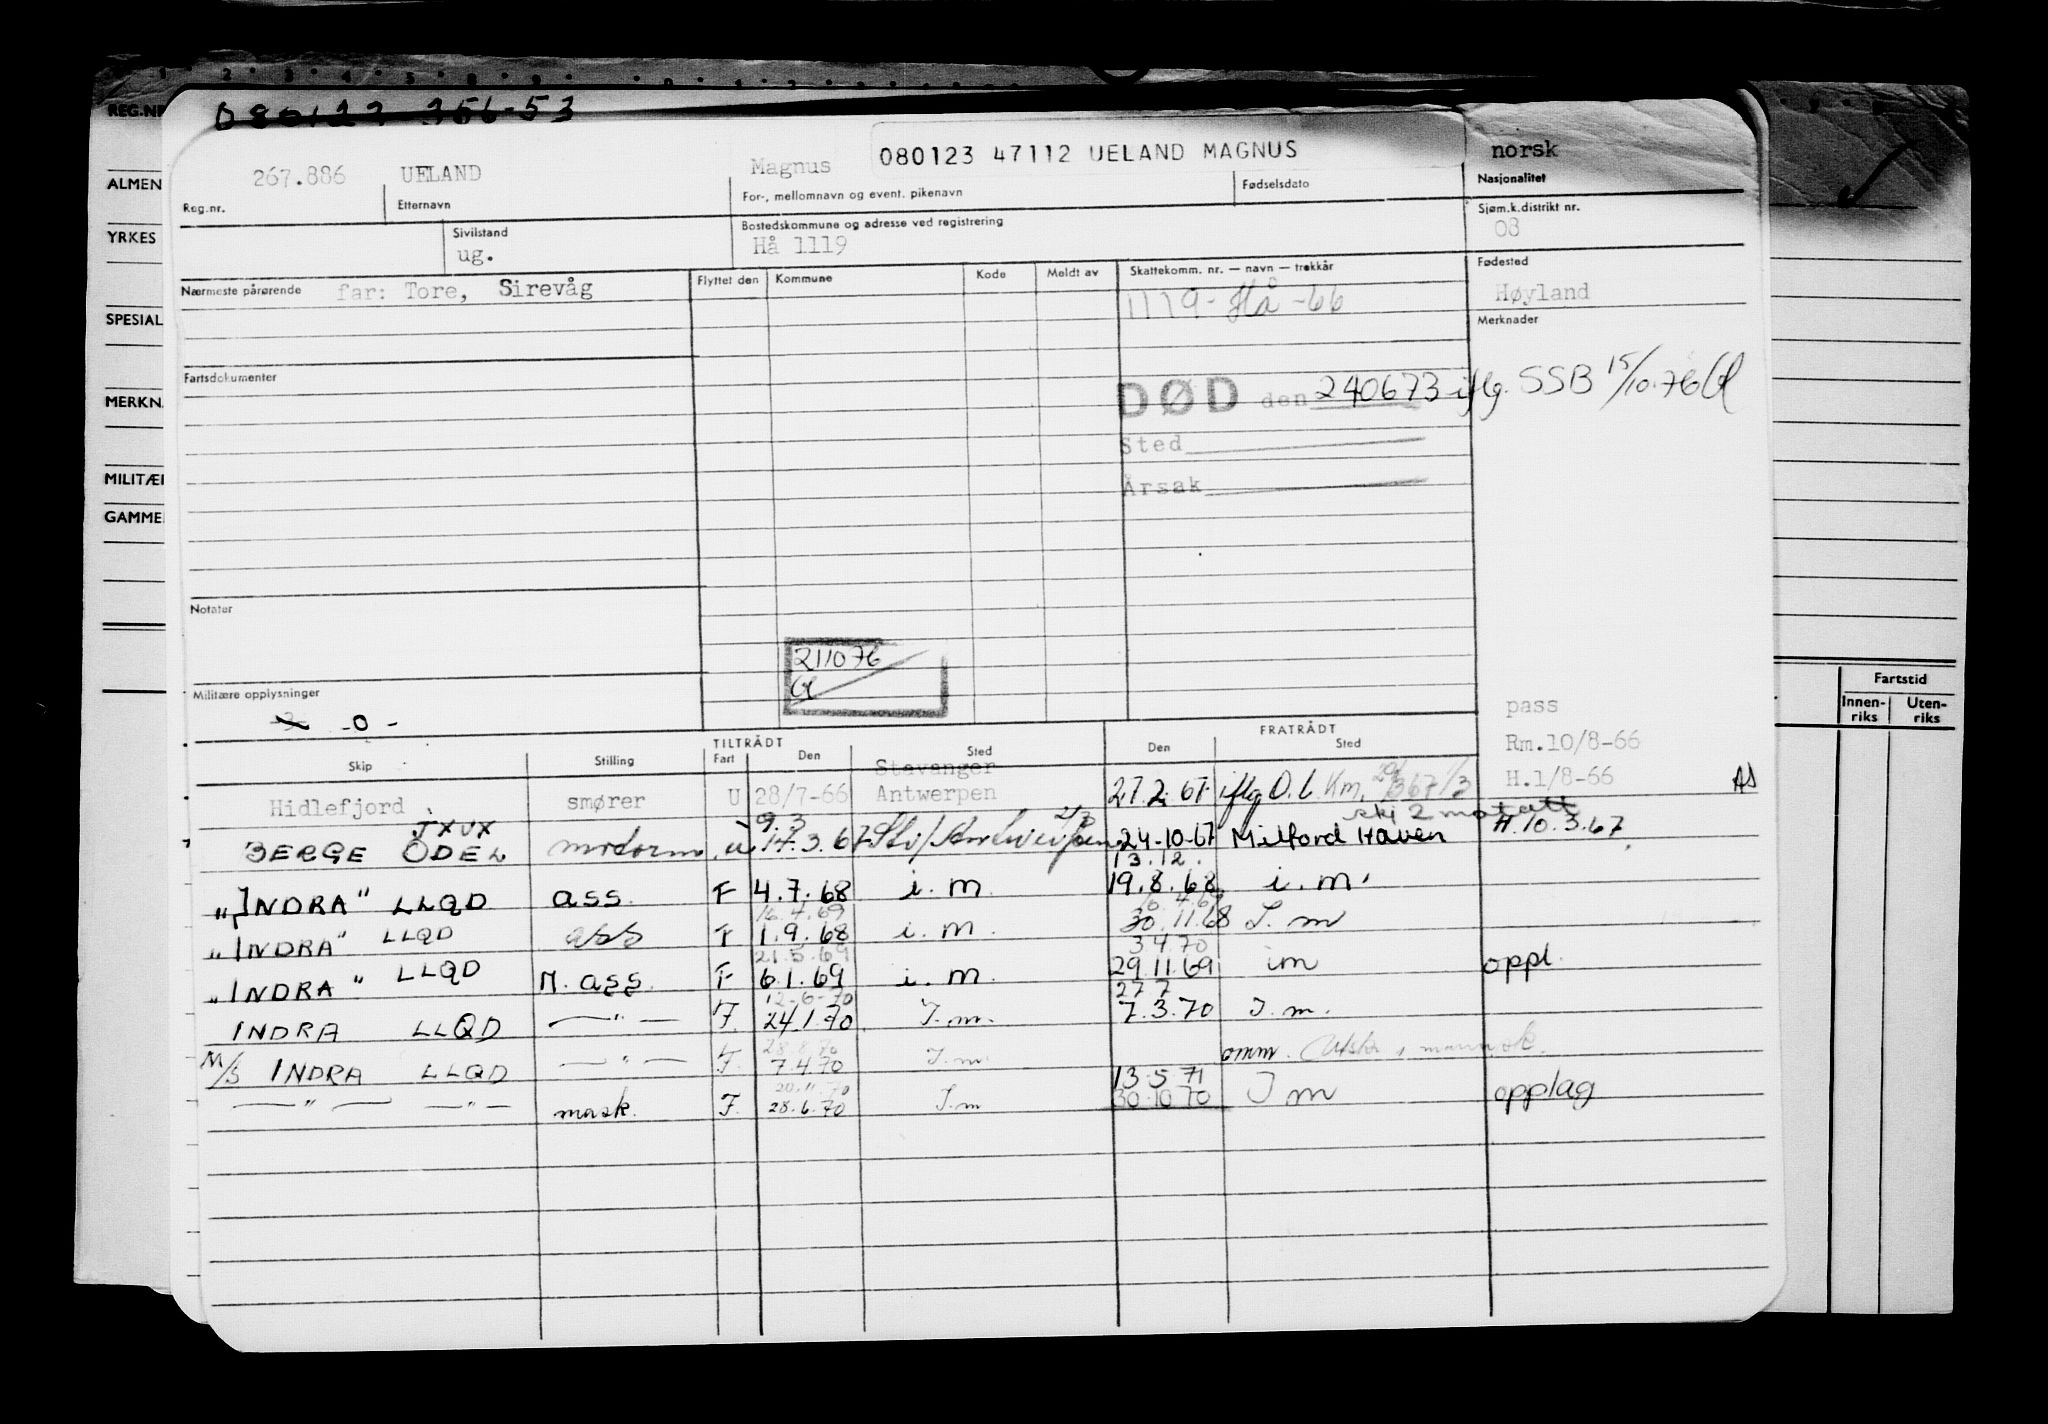 REG.NR
ALMEN
YRKES
SPESIAL
MERKN
MILITÆ
GAMME
Fartstid
Innen-riks Uten-riks
080123 47112 UELAND MAGNUS
norsk
Nasjonalitet
267.886 UELAND Magnus
Reg.nr. Etternavn For-, mellomnavn og event. pikenavn Fødselsdato
Sjøm.k.distrikt nr.
08
Sivilstand Bostedskommune og adresse ved registrering
ug. Hå 1119
Nærmeste pårørende far: Tore, Sirevåg
Flyttet den Kommune Kode Meldt av Skattekomm. nr. — navn — trekkår
Fødested
1119-Hå-66 Høyland
Merknader
Fartsdokumenter
DØD den 240673 iflg. SSB 15/10.76
Sted
Årsak
Notater
211076
Militære opplysninger
-0-
pass
Rm.10/8-66
H.1/8-66
TILTRÅDT FRATRÅDT
Skip Stilling Fart Den Sted Den Sted
Stavanger
Hidlefjord smører U 28/7-66 Antwerpen 27.2.67 iflg O.l.
JXUX 9.3
BERGE ODEL motorm. u 14.3.67 24-10-67 Milford Haven H.10.3.67
13.12.
"INDRA" LLQD ass. F 4.7.68 i.m. 19.8.68 i.m.
16.4.69
"INDRA" LLQD ass F 1.9.68 i.m. 30.11.68 I.m
21.5.69 3 4.70
"INDRA" LLQD M. ass. F 6.1.69 i.m. 29.11.69 im oppl.
12-6-70 27 7
INDRA LLQD —"— F. 24.1.70 I.m. 7.3.70 I.m.
28.8.70
M/S INDRA LLQD —"— F. 7.4.70 I.m. omm.
20.11.70 13.5.71
—"— —"— mask. F. 28.6.70 I.m 30.10.70 I m opplag